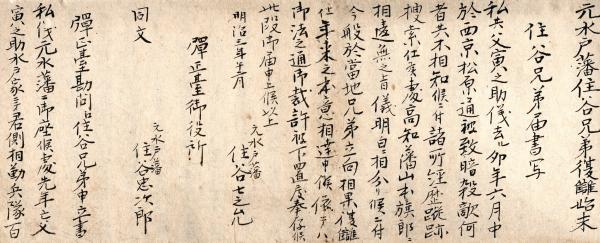 元水戸藩住谷兄弟復讎始末
住谷兄弟届書写
私共父寅之助儀去ル卯年六月中
於西京松原通被致暗殺敵何
者共不相知候ニ付諸所経歴蹤跡
捜索仕候處高知藩山本旗郎ニ
相違無之旨儀明白ニ相分リ候ニ付
今般於當地兄弟立向相果復讎
仕年来之本意相達申候依テハ
御法之通御裁許被下置度奉存候
此段御届申上候以上
明治三年二月
元水戸藩
住谷七之允
彈正臺御役所
元水戸藩
住谷忠次郎
同文
彈正臺勘問ニ住谷兄弟申立書
私儀元水藩ニ御座候處先年亡父
寅之助水戸家主君側相勤兵隊百